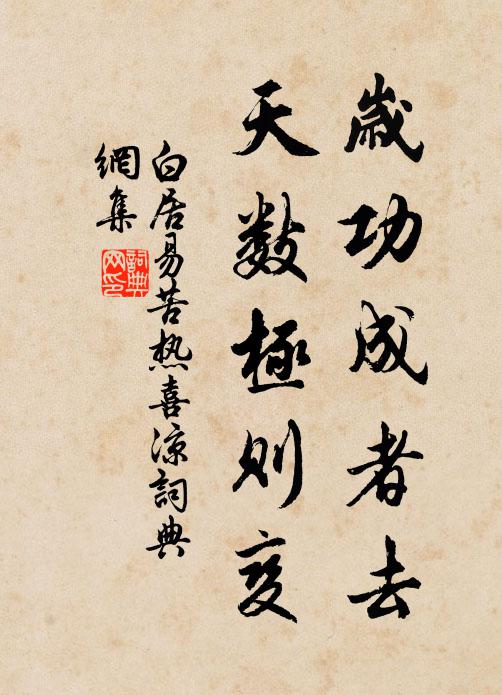 歲功成者去
天數極則变
白居易苦热喜凉詞典
網集
詞典网印